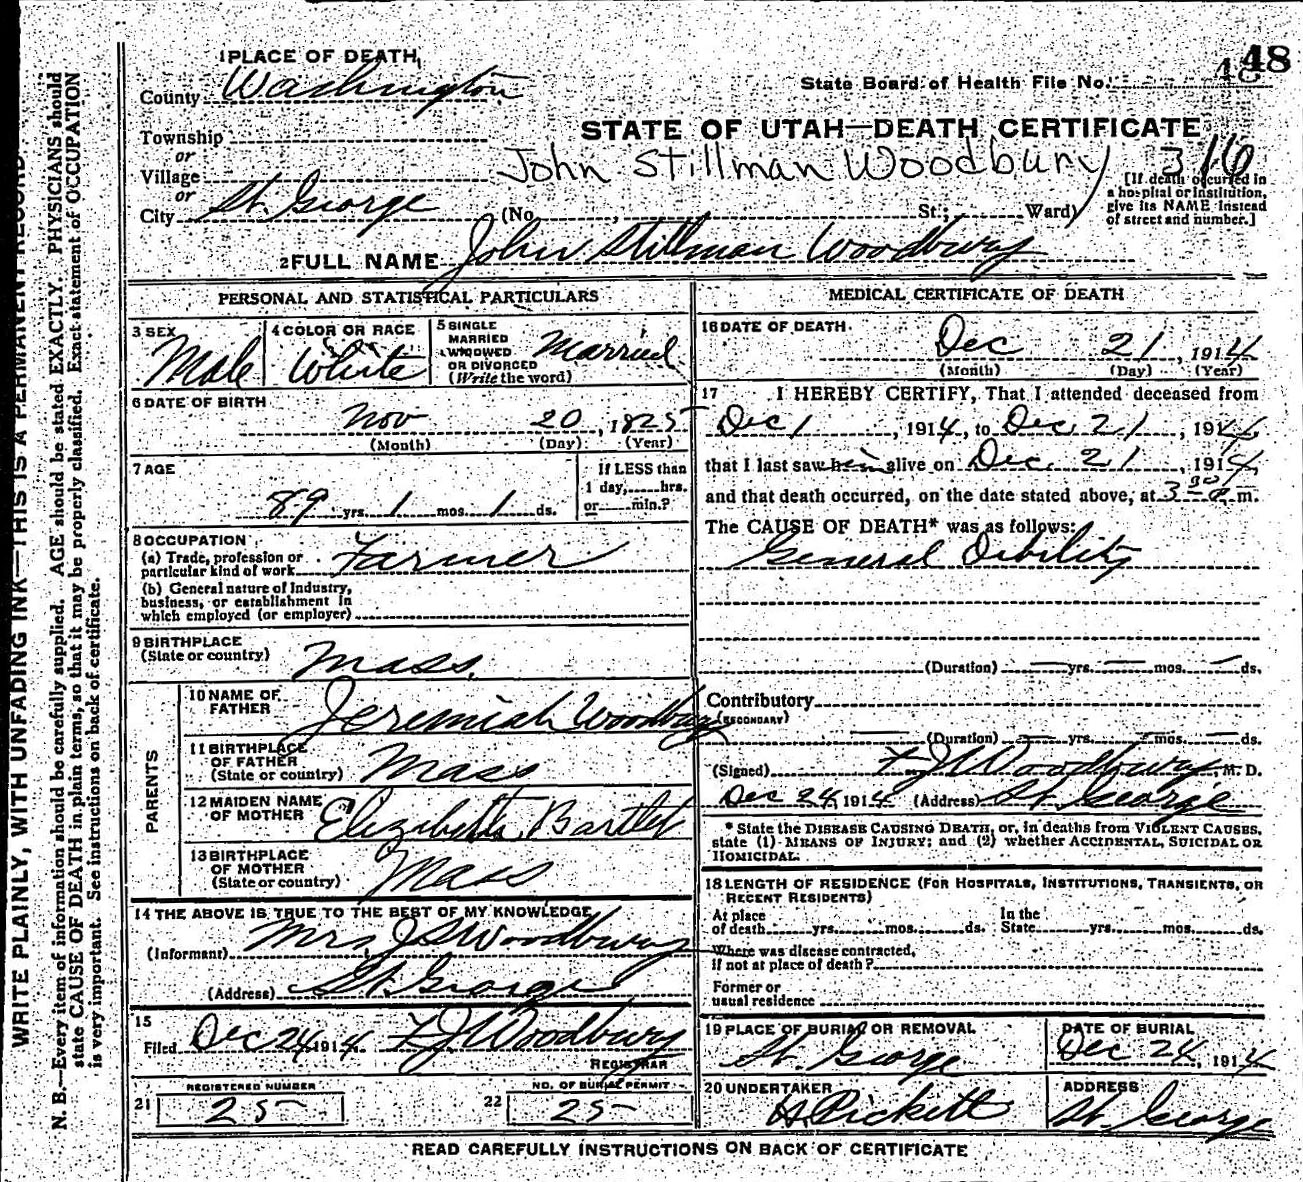 48
48
1 PLACE OF DEATH,
County Washington
State Board of Health File No.
Township
or
Village
or
City St. George
STATE OF UTAH—DEATH CERTIFICATE
John Stillman Woodbury 316
(No. , St.; Ward)
[If death occurred in
a hospital or institution,
give its NAME instead
of street and number.]
2 FULL NAME John Stillman Woodbury
PERSONAL AND STATISTICAL PARTICULARS
3 SEX
Male
4 COLOR OR RACE
White
5 SINGLE
MARRIED
WIDOWED
OR DIVORCED
(Write the word)
Married
6 DATE OF BIRTH
Nov 20, 1825
(Month) (Day) (Year)
7 AGE
89 yrs. 1 mos. 1 ds.
If LESS than
1 day, hrs.
or min.?
8 OCCUPATION
(a) Trade, profession or
particular kind of work Farmer
(b) General nature of industry,
business, or establishment in
which employed (or employer)
9 BIRTHPLACE
(State or country) Mass.
PARENTS
10 NAME OF
FATHER Jeremiah Woodbury
11 BIRTHPLACE
OF FATHER
(State or country) Mass
12 MAIDEN NAME
OF MOTHER Elizabeth Bartlet
13 BIRTHPLACE
OF MOTHER
(State or country) Mass
14 THE ABOVE IS TRUE TO THE BEST OF MY KNOWLEDGE
(Informant) Mrs J S Woodbury
(Address) St. George
15
Filed Dec 24 1914 F J Woodbury
REGISTRAR
REGISTERED NUMBER
21 25
NO. OF BURIAL PERMIT
22 25
MEDICAL CERTIFICATE OF DEATH
16 DATE OF DEATH.
Dec 21, 1914
(Month) (Day) (Year)
17 I HEREBY CERTIFY, That I attended deceased from
Dec 1, 1914, to Dec. 21, 1914,
that I last saw him alive on Dec. 21, 1914,
and that death occurred, on the date stated above, at 3 30 a m.
The CAUSE OF DEATH* was as follows:
General Dibility
(Duration) — yrs. — mos. — ds.
Contributory
(SECONDARY)
(Duration) — yrs. — mos. — ds.
(Signed) F J Woodbury, M. D.
Dec 24, 1914 (Address) St. George
* State the DISEASE CAUSING DEATH, or, in deaths from VIOLENT CAUSES,
state (1) MEANS OF INJURY; and (2) whether ACCIDENTAL, SUICIDAL OR
HOMICIDAL.
18 LENGTH OF RESIDENCE (FOR HOSPITALS, INSTITUTIONS, TRANSIENTS, OR
RECENT RESIDENTS)
At place
of death yrs. mos. ds.
In the
State yrs. mos. ds.
Where was disease contracted,
if not at place of death?
Former or
usual residence
19 PLACE OF BURIAL OR REMOVAL
St. George
DATE OF BURIAL
Dec 24, 1914
20 UNDERTAKER
A Pickett
ADDRESS
St. George
READ CAREFULLY INSTRUCTIONS ON BACK OF CERTIFICATE
WRITE PLAINLY, WITH UNFADING INK—THIS IS A PERMANENT RECORD
N. B.—Every item of information should be carefully supplied. AGE should be stated EXACTLY. PHYSICIANS should
state CAUSE OF DEATH in plain terms, so that it may be properly classified. Exact statement of OCCUPATION
is very important. See instructions on back of certificate.